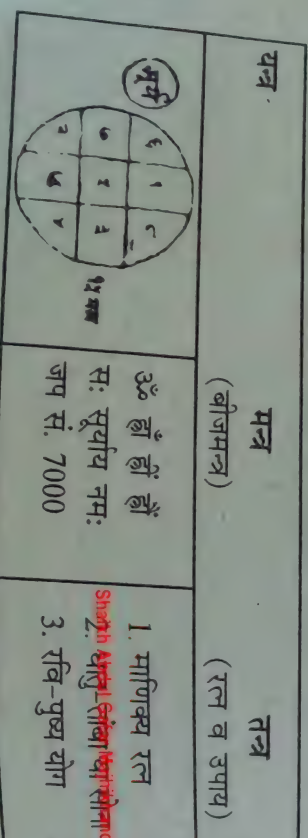 यन्त्र
मन्त्र
(बीजमन्त्र)
तन्त्र
(रत्न व उपाय)
सूर्य
६ १ ८
७ ५ ३
२ ९ ४
ॐ ह्राँ ह्रीं ह्रौं
सः सूर्याय नमः
जप सं. 7000
1. माणिक्य रत्न
2. धातु-तांबा या सोना
3. रवि-पुष्य योग